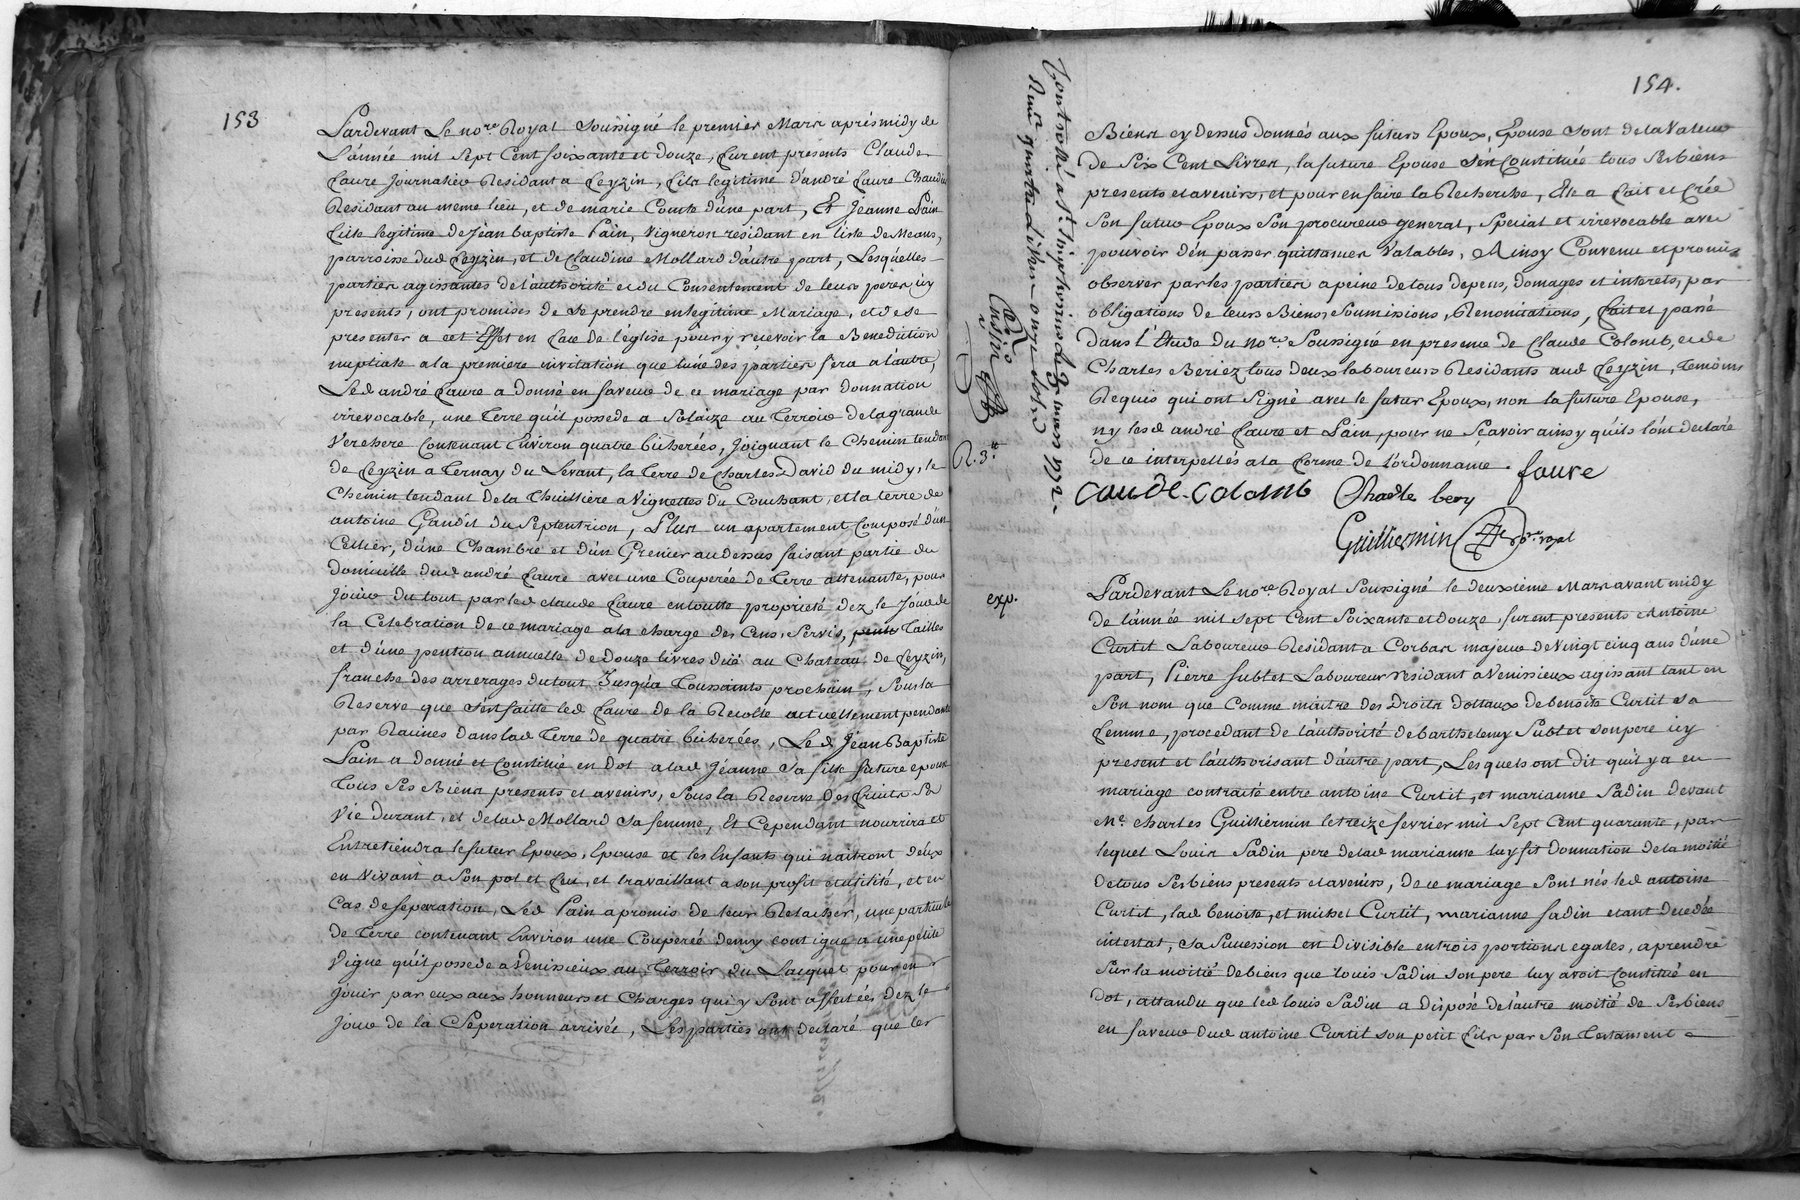 153
Pardevant Le no.re Royal soussigné le premier Mars aprés midy de
L'année mil sept Cent soixante et douze, furent presents Claude
faure Journalier Residant a feyzin, fils legitime d'andré faure Chaudier
Residant au meme lieu, et de marie Comte d'une part, Et Jéanne Pain
fille legitime de Jéan baptiste Pain, vigneron résidant en l'isle de Meaus,
parroisse dud feyzin, et de Claudine Mollard d'autre part, Lesquelles
parties agissantes de l'authorité et du Consentement de leurs peres icy
presents, ont promises de se prendre en legitime Mariage, et de se
presenter a cet Effet en face de l'église pour y recevoir la Benediction
nuptiale a la premiere invitation que l'une des parties fera a l'autre,
Led andré faure a donné en faveur de ce mariage par donnation
irrevocable, une Terre qu'il possede a Solaize au Terroir de la grande
Verchere Contenant Environ quatre bicherées, Joignant le Chemin tendant
de feyzin a Ternay du Levant, la Terre de Charles David du midy, le
Chemin tendant de la Thuilliere a Vignettes du Couchant, et la terre de
antoine Gandit du Septentrion, Plus un apartement Composé d'un
Cellier, d'une Chambre et d'un Grenier au dessus faisant partie du
domicille dud andré faure avec une Couperée de Terre attenante, pour
Joüir du tout par led claude faure en toutte proprieté dez le Jour de
la Celebration de ce mariage a la charge des Cens, Servis, Tailles
et d'une pention annuelle de Douze livres düe au Chateau de feyzin,
franche des arrerages du tout Jusqu'a Toussaints prochain, Sous la
Reserve que s'est faitte led faure de la Recolte actuellement pendante
par Racines dans lad Terre de quatre bicherées, Le d Jéan Baptiste
Pain a donné et Constitué en dot a lad Jéanne sa fille future epouse
Tous Ses Biens presents et avenirs, sous la Reserve des fruits sa
vie durant, et de lad Mollard sa femme, Et Cependant nourrira et
Entretiendra le futur Epoux, Epouse et les Enfants qui naitront d'eux
en vivant a son pot et feu, et travaillant a son profit et utilité, et en
Cas de Separation, Led Pain a promis de leur Relacher, une particule
de Terre contenant Environ une Couperée demy contigue a une petite
Vigne qu'il possede a Venissieux au Terroir du Lacquet pour en
Jouir par eux aux honneurs et Charges qui y sont affectées dez le
Jour de la Séperation arrivée, Les parties ont declaré que les
154.
Biens cy dessus donnés aux futurs Epoux, Epouse sont de la Valeur
de Six Cent Livres, la future Epouse s'est Constituée tous ses biens
presents et avenirs, et pour en faire la Recherche, Elle a fait et Crée
Son futur Epoux Son procureur general, Special et irrevocable avec
pouvoir d'en passer quittances Valables, Ainsy Convenu et promis
observer par les parties a peine de tous depens, domages et interets, par
obligations de leurs Biens, Soumissions, Renonciations, fait et passé
dans l'Etude du no.re Soussigné en presence de Claude Colomb, et de
Charles Beriez tous deux laboureurs Residants aud feyzin, Temoins
Requis qui ont Signé avec le futur Epoux, non la future Epouse,
ny lesd andré faure et Pain, pour ne Sçavoir ainsy qu'ils l'ont declaré
de ce interpellés a la forme de l'ordonnance. faure
Caude. Colomb Charle bery
Guilliermin no.re royal
Controllé a St Simphorien le 9 mars 1772.
R. 3.
exp.
Pardevant Le no.re Royal Soussigné le deuxième Mars avant midy
de l'année mil sept Cent Soixante et douze, furent presents Antoine
Curtil Laboureur Residant a Corbas majeur de vingt cinq ans d'une
part, Pierre Sublet Laboureur residant a Venissieux agissant tant en
Son nom que Comme maitre des Droits dottaux de benoite Curtil sa
femme, procedant de l'authorité de barthelemy Sublet son pere icy
present et l'authorisant d'autre part, Lesquels ont dit qu'il y a eu
mariage contracté entre antoine Curtil, et marianne Sadin devant
Me. charles Guilliermin le treize fevrier mil Sept Cent quarante, par
lequel Louis Sadin pere de lad marianne luy fit donnation de la moitié
de tous Ses biens presents et avenirs, de ce mariage Sont nés led antoine
Curtil, lad benoite, et michel Curtil, marianne Sadin etant decedée
intestat, sa Succession est divisible en trois portions egales, a prendre
Sur la moitié de biens que louis Sadin son pere luy avoit Constitué en
dot, attandu que led louis Sadin a disposé de l'autre moitié de Ses biens
en faveur dud antoine Curtil son petit fils par Son Testament